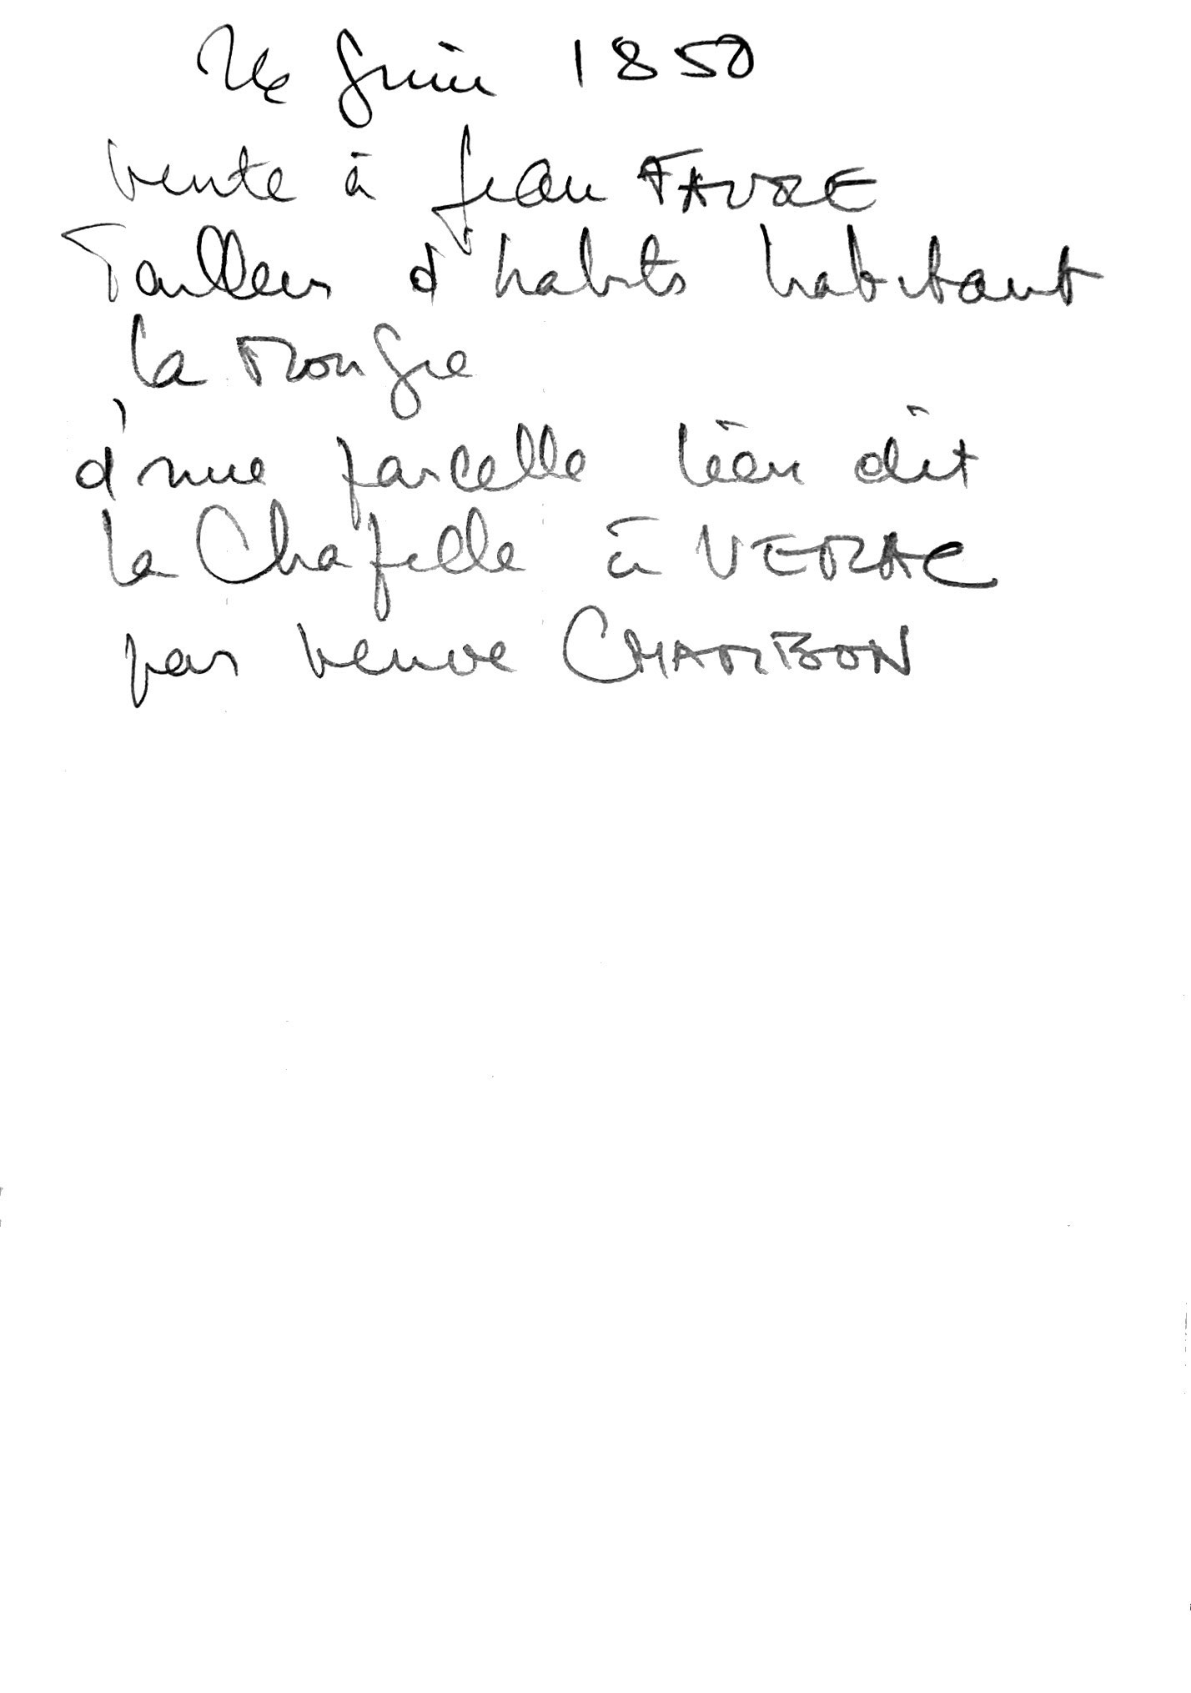 24 Juin 1850
vente à Jean FAVRE
Tailleur d'habits habitant
la
d'une parcelle lieu dit
la Chapelle à VERAC
par veuve CHAMBON